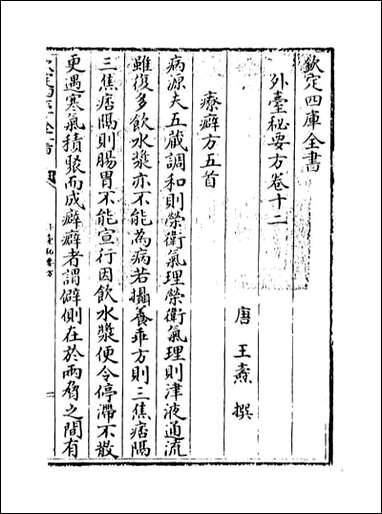 欽定四庫全書
外臺秘要方卷十二
唐 王燾 撰
療癖方五首
病源夫五藏調和則榮衛氣理榮衛氣理則津液通流
雖復多飲水漿亦不能為病若攝養乖方則三焦痞隔
三焦痞隔則腸胃不能宣行因飲水漿便令停滯不散
更遇寒氣積聚而成癖癖者謂僻側在於兩脅之間有